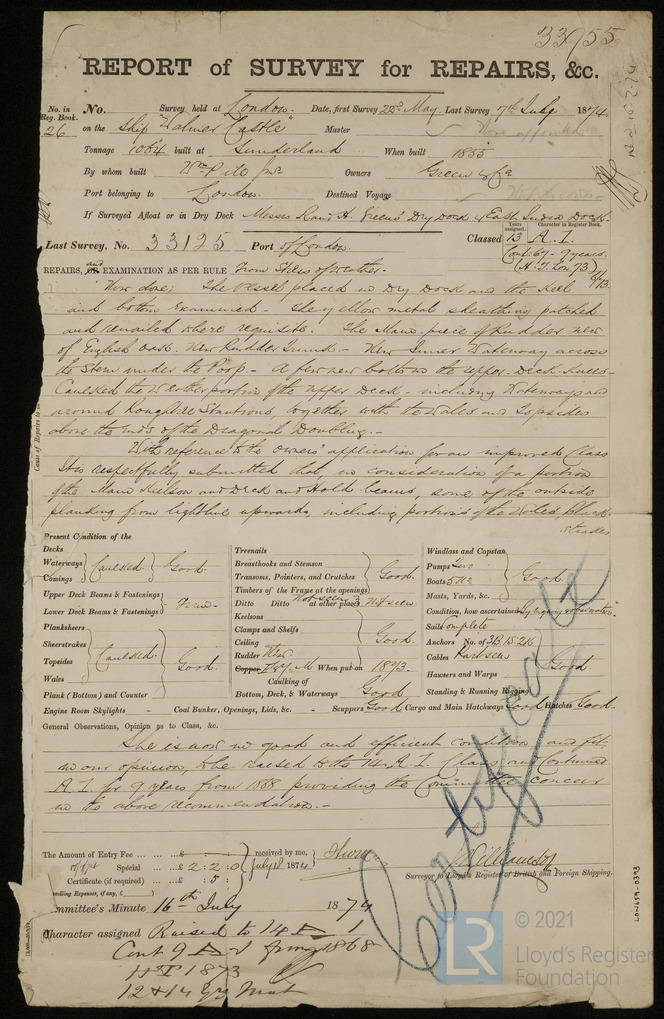 33955
REPORT of SURVEY for REPAIRS, &c.
No. in Reg. Book. No. Survey held at London. Date, first Survey 22nd May. Last Survey 7th July 1874.
26 on the Ship "Walmer Castle" Master
Tonnage 1064 built at Sunderland When built 1855
By whom built Wm. Pile Owners Green & Co
Port belonging to London. Destined Voyage
If Surveyed Afloat or in Dry Dock Messrs R and H. Green's Dry Dock & East India Dock.
Years assigned. Character in Register Book.
Last Survey, No. 33125 Port of London. Classed 13 A.1.
Cont. 67- 9 years
REPAIRS, and EXAMINATION AS PER RULE from Stress of Weather.
Now done; The Vessel placed in Dry Dock and the Keel
and bottom Examined. The yellow metal sheathing patched
and renailed where requisite. The Main piece of Rudder new
of English Oak. New Rudder Trunk. New Inner Waterway across
the Stern under the Poop. A few new bolts in the Upper Deck Knees
Caulked the Weather portion of the Upper Deck including Waterways and
around Roughtree Stantions, together with the Wales and Topsides
above the ends of the Diagonal Doubling.
With reference to the Owners' application for an improved Class
It is respectfully submitted that in consideration of a portion
of the Main Kielson and Deck and Hold beams, some of the outside
planking from lightline upwards, including portions of the Wales & Black
Strakes
Cause of Repairs to be
Present Condition of the
Decks
Waterways Caulked Good.
Comings
Upper Deck Beams & Fastenings
Lower Deck Beams & Fastenings
Planksheers
Sheerstrakes
Topsides Caulked. Good.
Wales
Plank (Bottom) and Counter
Treenails
Breasthooks and Stemson
Transoms, Pointers, and Crutches Good.
Timbers of the Frame at the openings
Ditto Ditto at other places Not seen
Keelsons
Clamps and Shelfs
Ceiling Good.
Rudder New
Copper Y.M. When put on 1873.
Caulking of
Bottom, Deck, & Waterways Good
Windlass and Capstan
Pumps
Boats Good
Masts, Yards, &c.
Condition, how ascertained
Sails Complete
Anchors No. of 3B. 1S. 2K
Cables Part seen Good.
Hawsers and Warps
Standing & Running Rigging
Engine Room Skylights - Coal Bunker, Openings, Lids, &c. - Scuppers Good Cargo and Main Hatchways Good Hatches Good.
General Observations, Opinion as to Class, &c.
She is now in good and efficient condition and fit,
in our opinion, to be raised to the 14. A.1. Class and Continued
A.1. for 9 years from 1868 providing the Committee concur
in the above recommendation.
The Amount of Entry Fee £ : : received by me,
Special £ 2 : 2 : 0 July 18 1874
Certificate (if required) £ : 5 :
Travelling Expenses, if any, £
Williamson
Surveyor to Lloyd's Register of British and Foreign Shipping.
Committee's Minute 16th July 1874
Character assigned Raised to 14 A 1
Cont 9 A 1 from 1868
1873
12 & 14
Certificate
LON459-0393
© 2021
LR
Lloyd's Register
Foundation